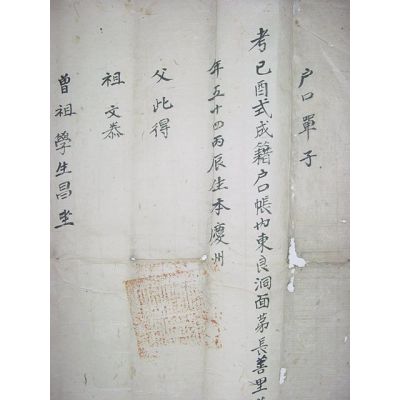 戶口單子
考己酉式成籍戶口帳內東良洞面第長善里
年五十四丙辰生本慶州
父此得
祖文恭
曾祖學生昌坐